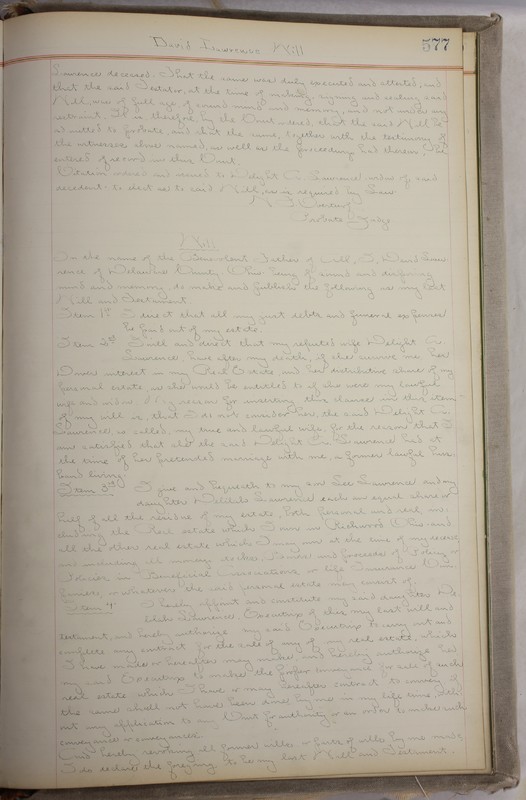 David Lawrence Will 577
Lawrence deceased. That the same was duly executed and attested, and
that the said Testator, at the time of making, signing and sealing said
Will, was of full age, of sound mind and memory, and not under any
restraint. It is therefore, by the Court ordered, that the said Will be
admitted to Probate, and that the same, together with the testimony of
the witnesses above named, as well as the proceedings had therein, be
entered of record in this Court.
Citation ordered and issued to Delight A. Lawrence widow of said
decedent to elect as to said Will, as is required by Law
Probate Judge
Will
In the name of the Benevolent Father of all, I, David Law-
rence of Delaware County Ohio being of sound and disposing
mind and memory, do make and publish the following as my last
Will and Testament
Item 1st I direct that all my just debts and funeral expenses
be paid out of my estate.
Item 2nd I will and direct that my reputed wife Delight A.
Lawrence, have after my death, if she survive me her
Dower interest in my Real Estate, and her distributive share of my
personal estate, as she would be entitled to if she were my lawful
wife and widow. My reason for inserting this clause in this item
of my will is, that I do not consider her, the said Delight A.
Lawrence, so called, my true and lawful wife, for the reason that I
am satisfied that she the said Delight A. Lawrence had at
the time of her pretended marriage with me, a former lawful hus-
band living.
Item 3rd I give and bequeath to my son Lee Lawrence and my
daughter Delilah Lawrence each an equal share or
half of all the residue of my estate, both personal and real in-
cluding the Real estate which I own in Richwood Ohio and
all the other real estate which I may own at the time of my decease
and including all moneys, stocks, and proceeds of Policy or
Policies in Beneficial Associations or Life Insurance Com-
panies, or whatever the said personal estate may consist of.
Item 4" I hereby appoint and constitute my said daughter De-
lilah Lawrence, Executrix of this my last will and
testament, and hereby authorize my said Executrix to carry out and
complete any contract for the sale of any of my real estate, which
I have made or hereafter may make, and hereby authorize
my said Executrix to make the proper conveyance for sale of such
real estate which I have or may hereafter contract to convey if
the same shall not have been done by me in my life time with-
out any application to any Court for authority, or an order to make such
conveyance or conveyances.
And hereby revoking all former wills, or parts of wills by me made,
I do declare the foregoing to be my last Will and Testament.